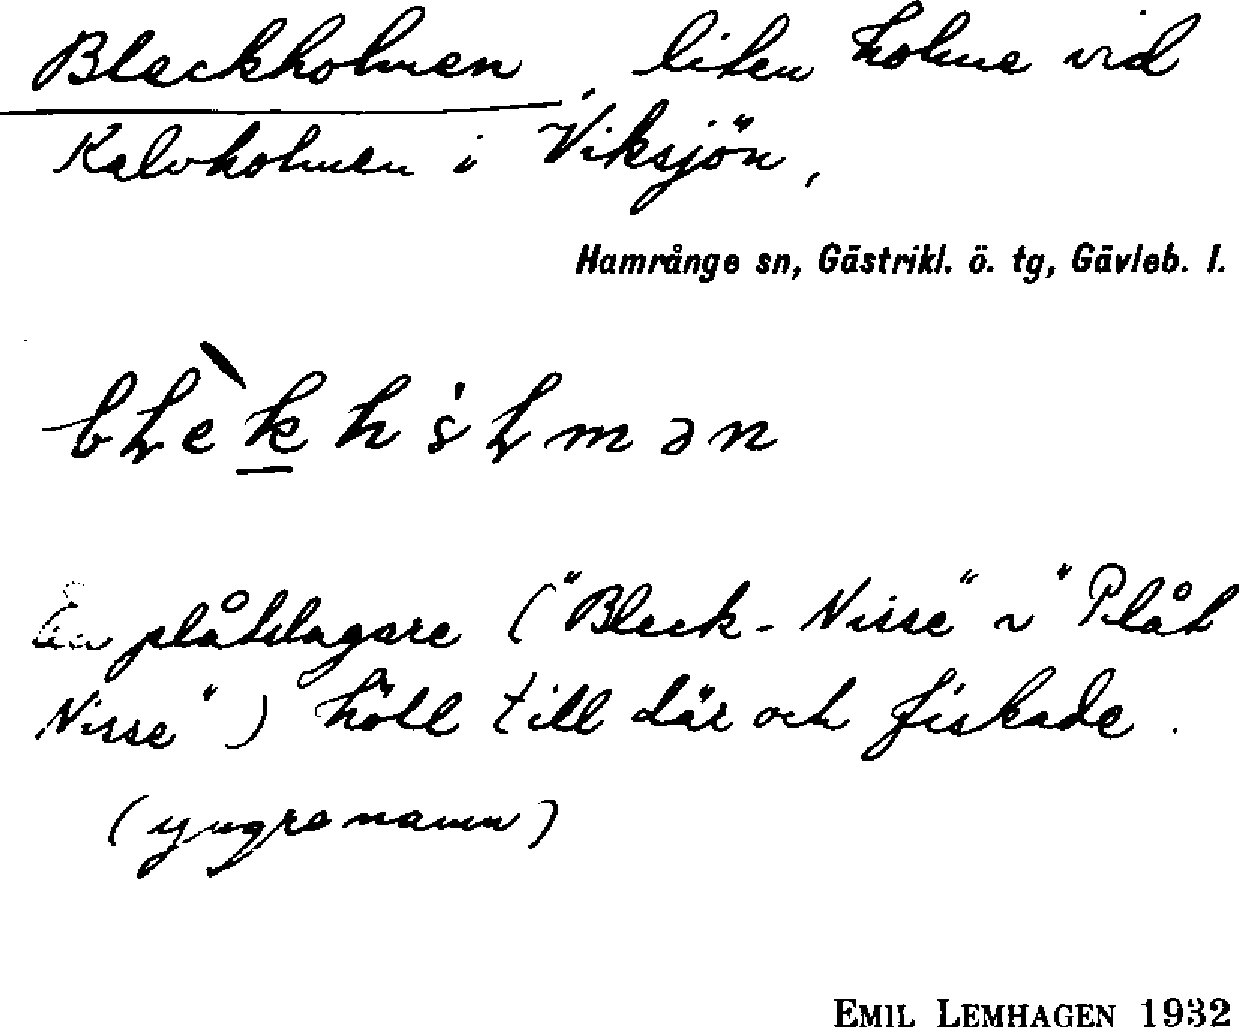 Bleckholmen, liten holme vid
Kalvholmen i Viksjön,
Hamrånge sn, Gästrikl. ö. tg, Gävleb. l.
blèkhólmən
En plåtslagare ("Bleck-Nisse" ~ "Plåt
Nisse") höll till där och fiskade.
(yngre namn)
EMIL LEMHAGEN 1932